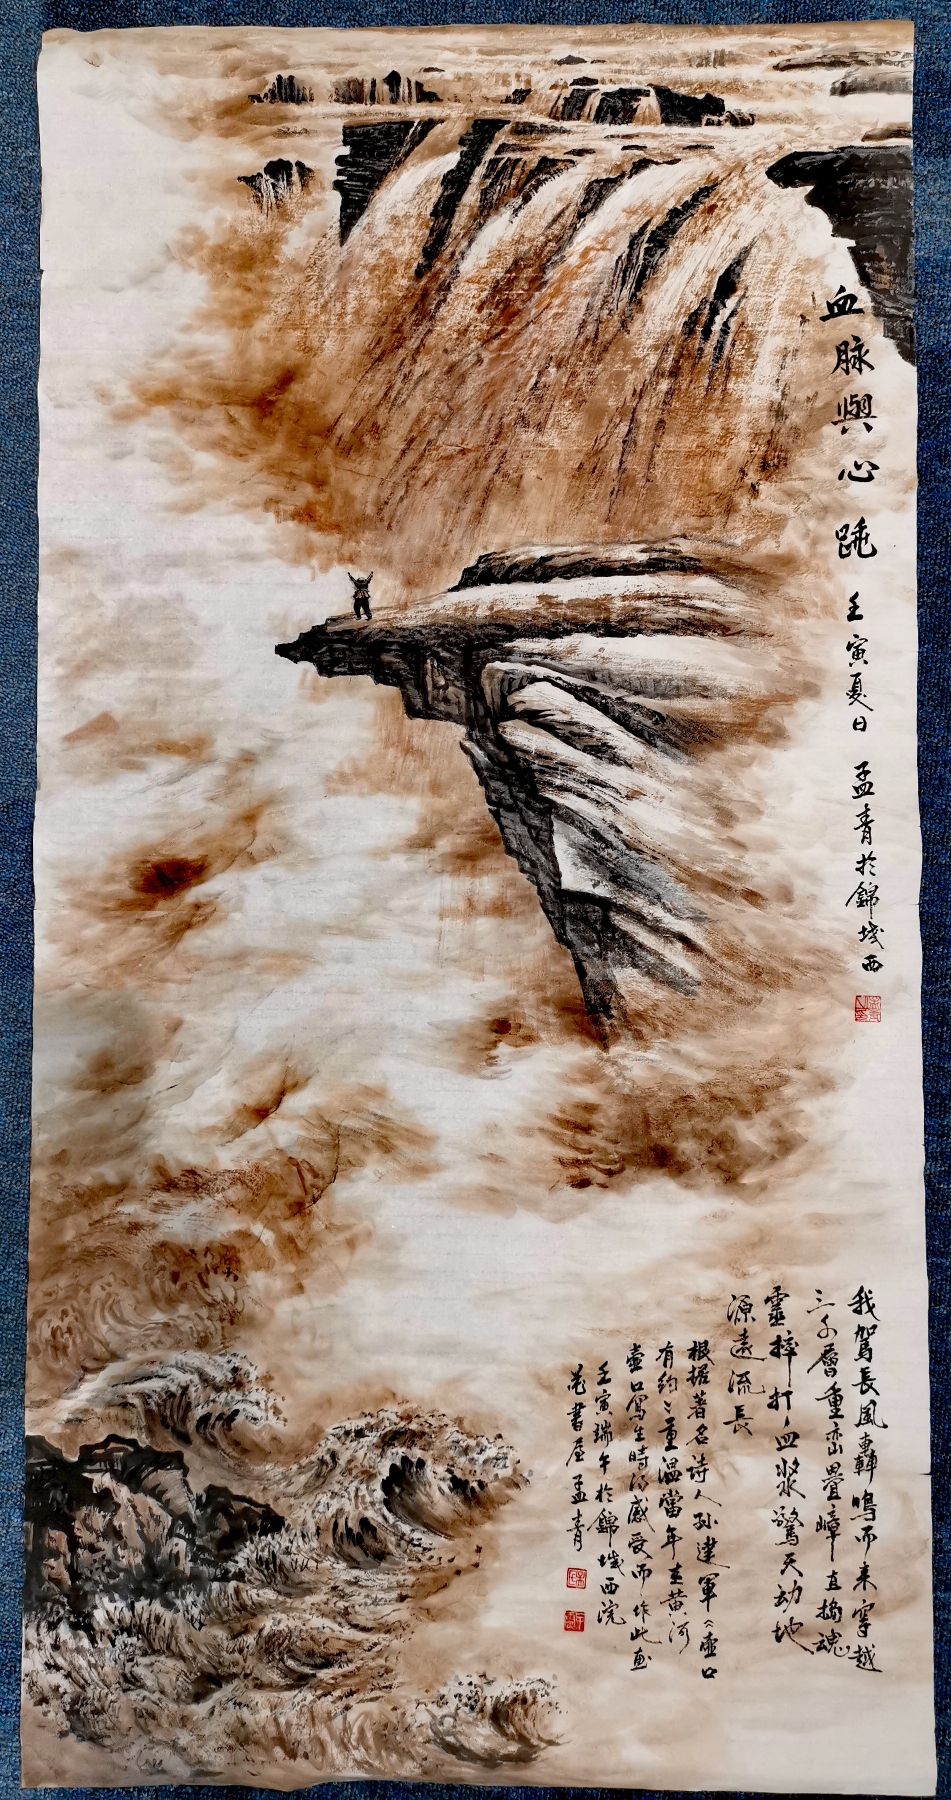 血脉與心跳 壬寅夏日 孟青於錦城西
我駕長風轟鳴而来穿越
三千層重峦疊嶂直搗魂
靈摔打血漿驚天动地
源遠流長
根据著名诗人孙建軍《壺口
有约》重温當年在黄河
壺口寫生時的感受而作此画
壬寅端午於錦城西浣
花書屋孟青